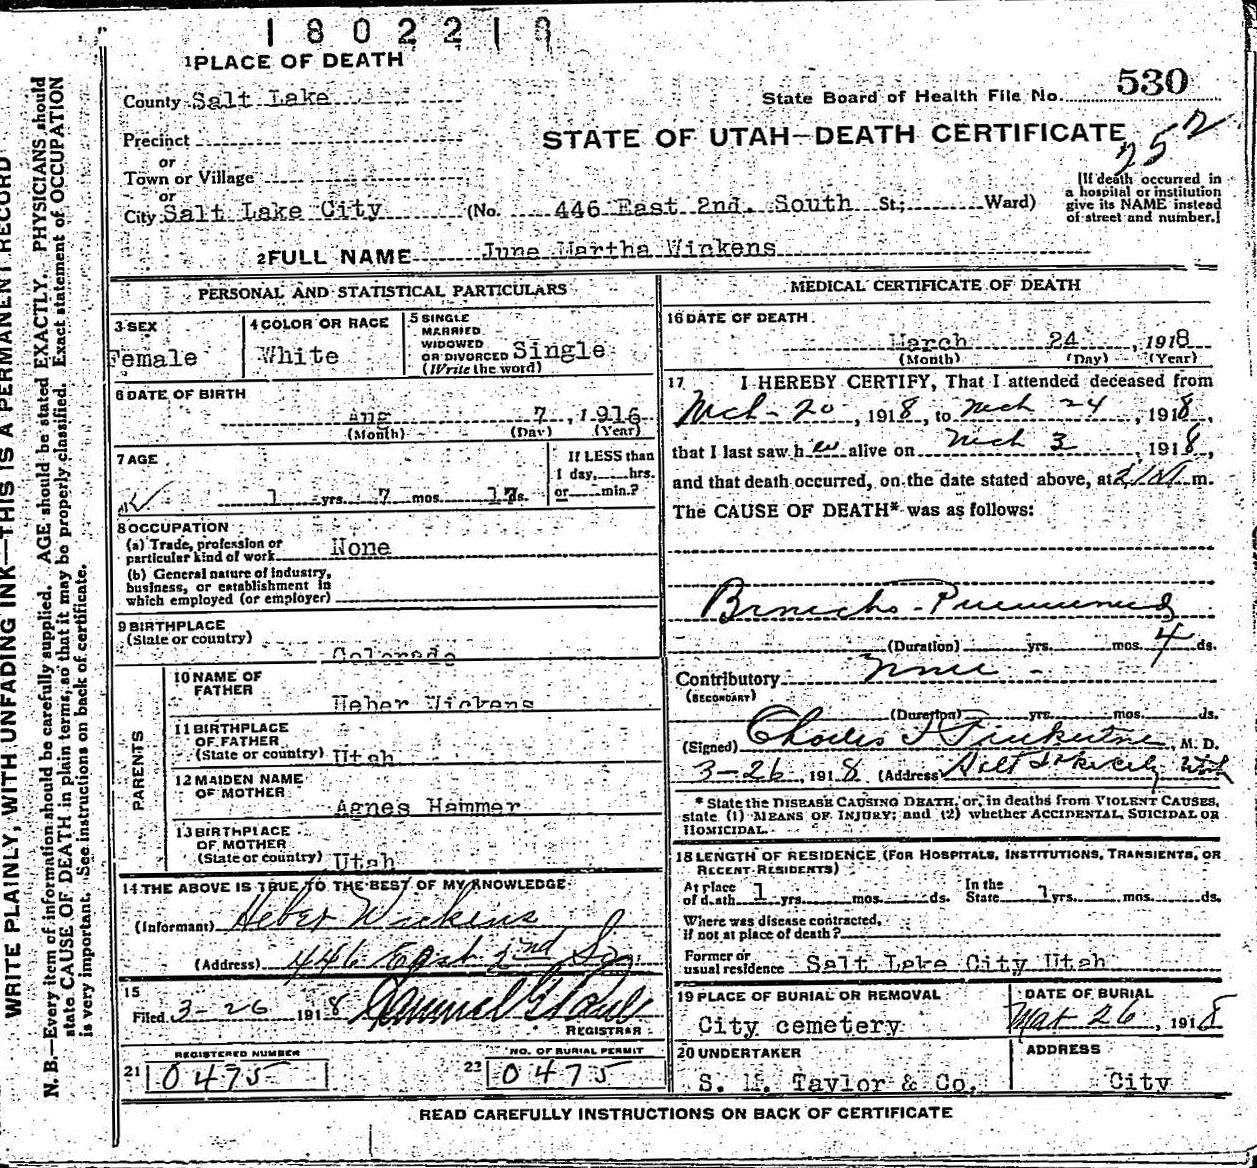 1802218
1 PLACE OF DEATH
County Salt Lake
State Board of Health File No. 530
Precinct
STATE OF UTAH—DEATH CERTIFICATE
252
or
Town or Village
or
City Salt Lake City (No. 446 East 2nd. South St; Ward)
[If death occurred in
a hospital or institution
give its NAME instead
of street and number.]
2 FULL NAME June Martha Winkens
PERSONAL AND STATISTICAL PARTICULARS
3 SEX
Female
4 COLOR OR RACE
White
5 SINGLE
MARRIED
WIDOWED
OR DIVORCED Single
(Write the word)
6 DATE OF BIRTH
Aug 7, 1916
(Month) (Day) (Year)
7 AGE
1 yrs. 7 mos. 17 ds.
If LESS than
1 day, hrs.
or min.?
8 OCCUPATION
(a) Trade, profession or
particular kind of work None
(b) General nature of industry,
business, or establishment in
which employed (or employer)
9 BIRTHPLACE
(State or country)
Colorado
PARENTS
10 NAME OF
FATHER
Heber Wickens
11 BIRTHPLACE
OF FATHER
(State or country) Utah
12 MAIDEN NAME
OF MOTHER
Agnes Hammer
13 BIRTHPLACE
OF MOTHER
(State or country) Utah
14 THE ABOVE IS TRUE TO THE BEST OF MY KNOWLEDGE
(Informant) Heber Wickens
(Address) 446 East 2nd So.
15
Filed 3-26 1918
REGISTRAR
REGISTERED NUMBER
21 0475
NO. OF BURIAL PERMIT
22 0475
MEDICAL CERTIFICATE OF DEATH
16 DATE OF DEATH
March 24, 1918
(Month) (Day) (Year)
17 I HEREBY CERTIFY, That I attended deceased from
Mch-20, 1918, to Mch 24, 1918,
that I last saw h er alive on Mch 3, 1918,
and that death occurred, on the date stated above, at m.
The CAUSE OF DEATH* was as follows:
Broncho-Pneumonia
(Duration) yrs. mos. 4 ds.
Contributory None
(SECONDARY)
(Duration) yrs. mos. ds.
(Signed) Charles Pinkerton, M. D.
3-26, 1918 (Address) Salt Lake City Utah
* State the DISEASE CAUSING DEATH, or, in deaths from VIOLENT CAUSES,
state (1) MEANS OF INJURY; and (2) whether ACCIDENTAL, SUICIDAL OR
HOMICIDAL.
18 LENGTH OF RESIDENCE (FOR HOSPITALS, INSTITUTIONS, TRANSIENTS, OR
RECENT RESIDENTS)
At place
of death 1 yrs. mos. ds.
In the
State 1 yrs. mos. ds.
Where was disease contracted,
If not at place of death?
Former or
usual residence Salt Lake City Utah
19 PLACE OF BURIAL OR REMOVAL
City cemetery
DATE OF BURIAL
Mar 26, 1918
20 UNDERTAKER
S. M. Taylor & Co.
ADDRESS
City
READ CAREFULLY INSTRUCTIONS ON BACK OF CERTIFICATE
WRITE PLAINLY, WITH UNFADING INK—THIS IS A PERMANENT RECORD
N. B.—Every item of information should be carefully supplied. AGE should be stated EXACTLY. PHYSICIANS should
state CAUSE OF DEATH in plain terms, so that it may be properly classified. Exact statement of OCCUPATION
is very important. See instructions on back of certificate.